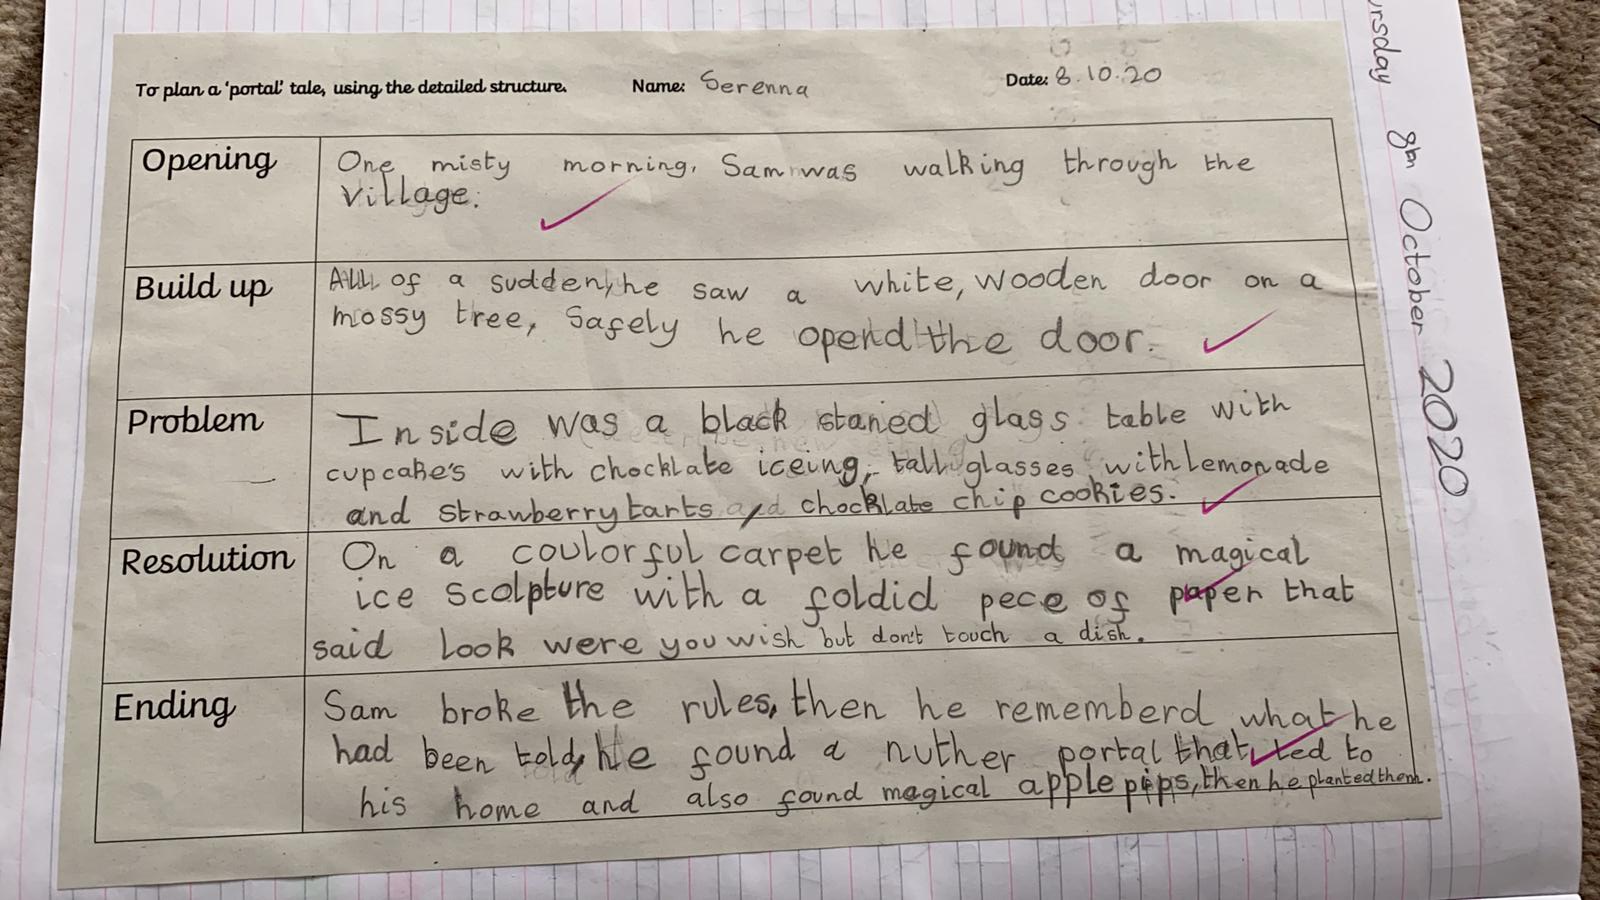 To plan a 'portal' tale, using the detailed structure. Name: Serenna Date: 8.10.20
Opening
One misty morning, Sam was walking through the
Village.
Build up
All of a sudden, he saw a white, wooden door on a
mossy tree, Safely he opend the door.
Problem
Inside was a black staned glass table with
cupcake's with chocklate iceing, tall glasses with lemonade
and Strawberry tarts and chocklate chip cookies.
Resolution
On a coulorful carpet he found a magical
ice scolpture with a foldid pece of paper that
said look were you wish but don't touch a dish.
Ending
Sam broke the rules, then he rememberd what he
had been told, he found a nuther portal that led to
his home and also found magical apple pips, then he planted them.
ursday 8th October 2020